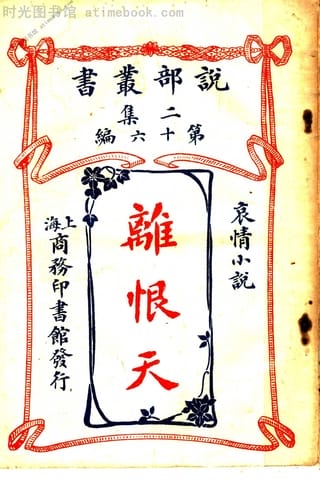 时光图书馆 atimebook.com
説部叢書
第二集十六編
哀情小説
離恨天
上海商務印書館發行